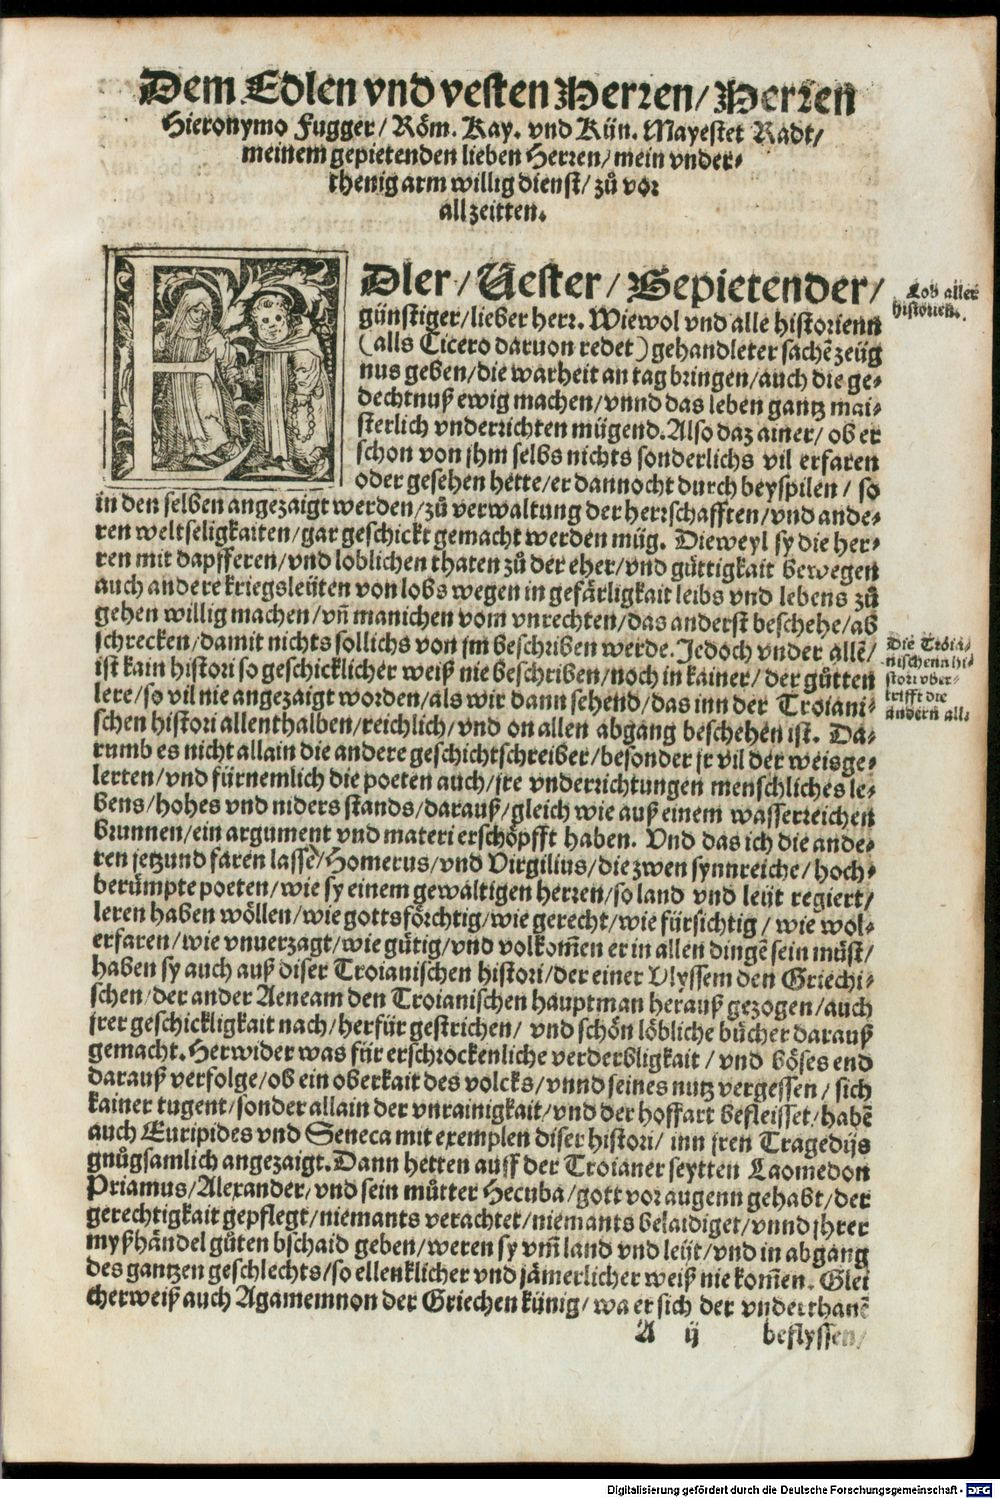 Dem Edlen vnd vesten Herren/ Herren
Hieronymo Fugger/ Röm. Kay. vnd Kün. Mayestet Radt/
meinem gepietenden lieben Herren/ mein vnder⸗
thenig arm willig dienst/ zů vor
all zeitten.
EDler/ Vester/ Gepietender/
günstiger/ lieber herr. Wiewol vnd alle historienn
(alls Cicero daruon redet) gehandleter sachẽ zeüg
nus geben/ die warheit an tag bringen/ auch die ge⸗
dechtnuß ewig machen/ vnnd das leben gantz mai⸗
sterlich vnderrichten mügend. Also daz ainer/ ob er
schon von jhm selbs nichts sonderlichs vil erfaren
oder gesehen hette/ er dannocht durch beyspilen/ so
in den selben angezaigt werden/ zů verwaltung der herrschafften/ vnd ande⸗
ren weltseligkaiten/ gar geschickt gemacht werden müg. Dieweyl sy die her⸗
ren mit dapfferen/ vnd loblichen thaten zů der eher/ vnd güttigkait bewegen
auch andere kriegsleüten von lobs wegen in gefärligkait leibs vnd lebens zů
gehen willig machen/ vñ manichen vom vnrechten/ das anderst beschehe/ ab
schrecken/ damit nichts sollichs von jm beschriben werde. Jedoch vnder allẽ/
ist kain histori so geschicklicher weiß nie beschriben/ noch in kainer/ der gůtten
lere/ so vil nie angezaigt worden/ als wir dann sehend/ das inn der Troiani⸗
schen histori allenthalben/ reichlich/ vnd on allen abgang beschehen ist. Da⸗
rumb es nicht allain die andere geschichtschreiber/ besonder jr vil der weisge⸗
lerten/ vnd fürnemlich die poeten auch/ jre vnderrichtungen menschliches le⸗
bens/ hohes vnd niders stands/ darauß/ gleich wie auß einem wasserreichen
brunnen/ ein argument vnd materi erschöpfft haben. Vnd das ich die ande⸗
ren jetzund faren lassẽ/ Homerus/ vnd Virgilius/ die zwen synnreiche/ hoch⸗
berümpte poeten/ wie sy einem gewaltigen herren/ so land vnd leüt regiert/
leren haben wöllen/ wie gottsförchtig/ wie gerecht/ wie fürsichtig/ wie wol⸗
erfaren/ wie vnuerzagt/ wie gütig/ vnd volkom̃en er in allen dingẽ sein müst/
haben sy auch auß diser Troianischen histori/ der einer Vlyssem den Griechi⸗
schen/ der ander Aeneam den Troianischen hauptman herauß gezogen/ auch
jrer geschickligkait nach/ herfür gestrichen/ vnd schön löbliche bücher darauß
gemacht. Herwider was für erschrockenliche verderbligkait/ vnd böses end
darauß verfolge/ ob ein oberkait des volcks/ vnnd seines nutz vergessen/ sich
kainer tugent/ sonder allain der vnrainigkait/ vnd der hoffart befleisset/ habẽ
auch Euripides vnd Seneca mit exemplen diser histori/ inn jren Tragedijs
gnůgsamlich angezaigt. Dann hetten auff der Troianer seytten Laomedon
Priamus/ Alexander/ vnd sein můtter Hecuba/ gott vor augenn gehabt/ der
gerechtigkait gepflegt/ niemants verachtet/ niemants belaidiget/ vnnd jhrer
myßhändel gůten bschaid geben/ weren sy vm̃ land vnd leüt/ vnd in abgang
des gantzen geschlechts/ so ellenklicher vnd jämerlicher weiß nie kom̃en. Glei
cherweiß auch Agamemnon der Griechen künig/ wa er sich der vnderthanẽ
A ij beflyssen/
Lob aller
historien.
Die Troia⸗
nischenn hi⸗
stori vber⸗
trifft die
andern all⸗
Digitalisierung gefördert durch die Deutsche Forschungsgemeinschaft - DFG